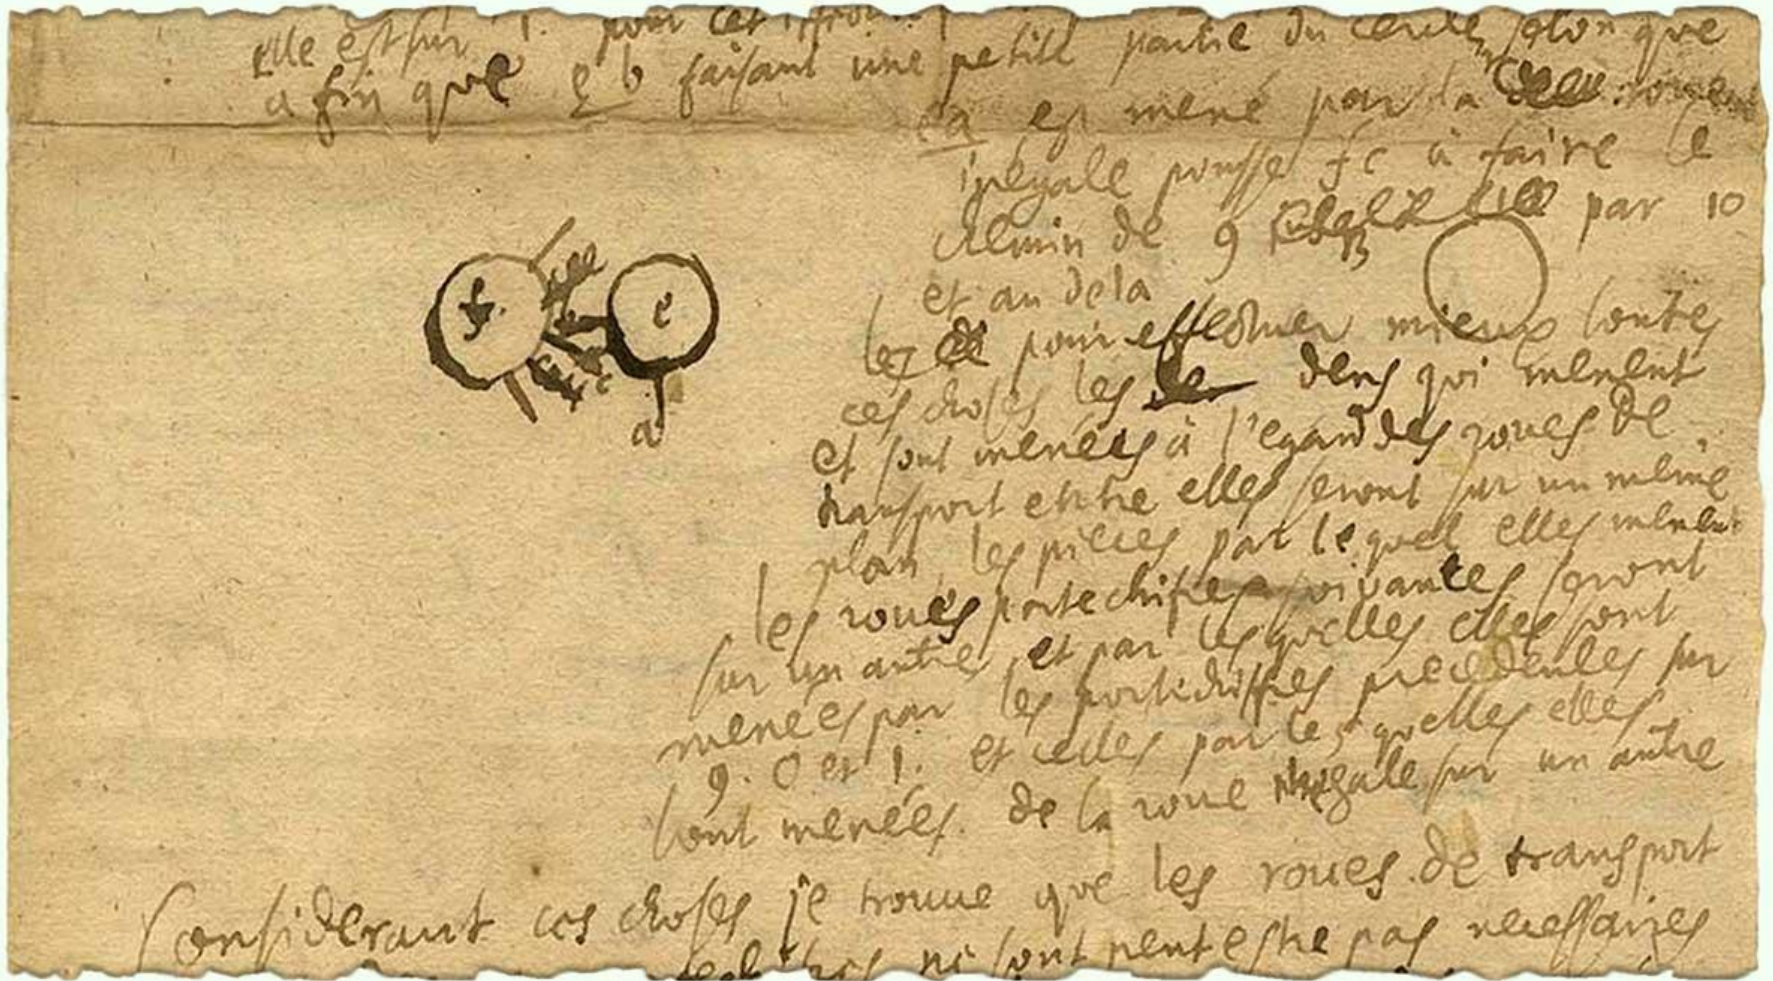 elle est sur 1. pour cet
partie du cercle, selon que
a fin que eb faisant une petite
ea est mené par la roue
inegale pousse fc à faire le
chemin de 9 par 10
et au dela
f
e
a
les pour effectuer mieux toutes
ces choses les dens qui menent
et sont menées à l'egard des roues de
transport entre elles seront sur un même
plan, les pieces par lequel elles menent
les roues portechifres suivantes seront
sur un autre, et par lesquelles elles sont
menées par les portechiffres precedentes sur
9. 0 et 1. et celles par lesquelles elles
sont menées de la roue inegale sur un autre
Considerant ces choses je trouve que les roues de transport
ni sont peutestre pas necessaires